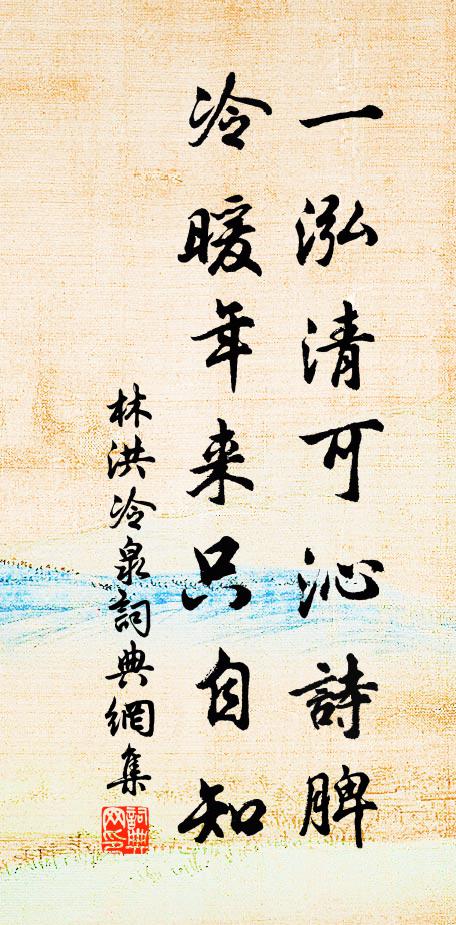 一泓清可沁詩脾
冷暖年来只自知
林洪冷泉詞典網集
詞典网印